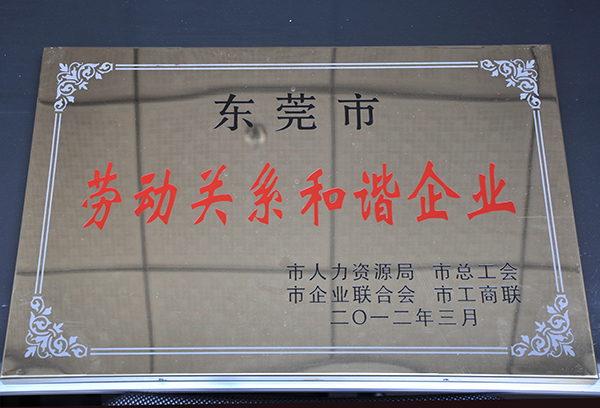 东莞市
劳动关系和谐企业
市人力资源局 市总工会
市企业联合会 市工商联
二〇一二年三月